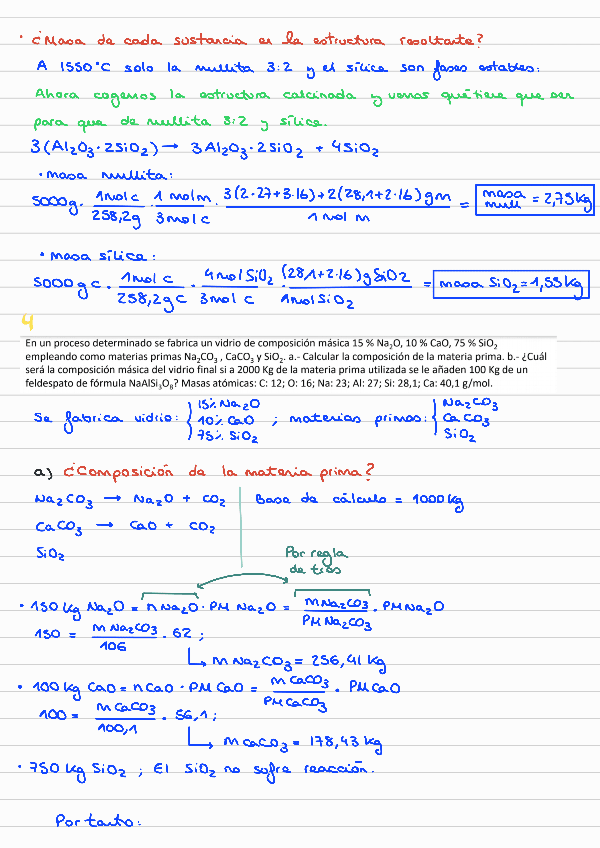 · ¿Masa de cada sustancia en la estructura resultante?
A 1550°C solo la mullita 3:2 y el sílice son fases estables.
Ahora cogemos la estructura calcinada y vemos qué tiene que ser
para que de mullita 3:2 y sílice.
3(Al₂O₃·2SiO₂) → 3Al₂O₃·2SiO₂ + 4SiO₂
· masa mullita:
5000g · 1 mol c / 258,2g · 1 mol m / 3 mol c · 3(2·27+3·16)+2(28,1+2·16) g m / 1 mol m = masa mull = 2,75 kg
· masa sílice:
5000 g c · 1 mol c / 258,2 g c · 4 mol SiO₂ / 3 mol c · (28,1+2·16) g SiO₂ / 1 mol SiO₂ = masa SiO₂ = 1,55 kg
4
En un proceso determinado se fabrica un vidrio de composición másica 15 % Na₂O, 10 % CaO, 75 % SiO₂
empleando como materias primas Na₂CO₃ , CaCO₃ y SiO₂. a.- Calcular la composición de la materia prima. b.- ¿Cuál
será la composición másica del vidrio final si a 2000 Kg de la materia prima utilizada se le añaden 100 Kg de un
feldespato de fórmula NaAlSi₃O₈? Masas atómicas: C: 12; O: 16; Na: 23; Al: 27; Si: 28,1; Ca: 40,1 g/mol.
Se fabrica vidrio: { 15% Na₂O 10% CaO 75% SiO₂ ; materias primas: { Na₂CO₃ CaCO₃ SiO₂
a) ¿Composición de la materia prima?
Na₂CO₃ → Na₂O + CO₂ Base de cálculo = 1000 kg
CaCO₃ → CaO + CO₂
SiO₂
Por regla
de tres
· 150 kg Na₂O = n Na₂O · PM Na₂O = m Na₂CO₃ / PM Na₂CO₃ · PM Na₂O
150 = m Na₂CO₃ / 106 · 62 ;
↳ m Na₂CO₃ = 256,41 kg
· 100 kg CaO = n CaO · PM CaO = m CaCO₃ / PM CaCO₃ · PM CaO
100 = m CaCO₃ / 100,1 · 56,1 ;
↳ m CaCO₃ = 178,43 kg
· 750 kg SiO₂ ; El SiO₂ no sufre reacción.
Por tanto: